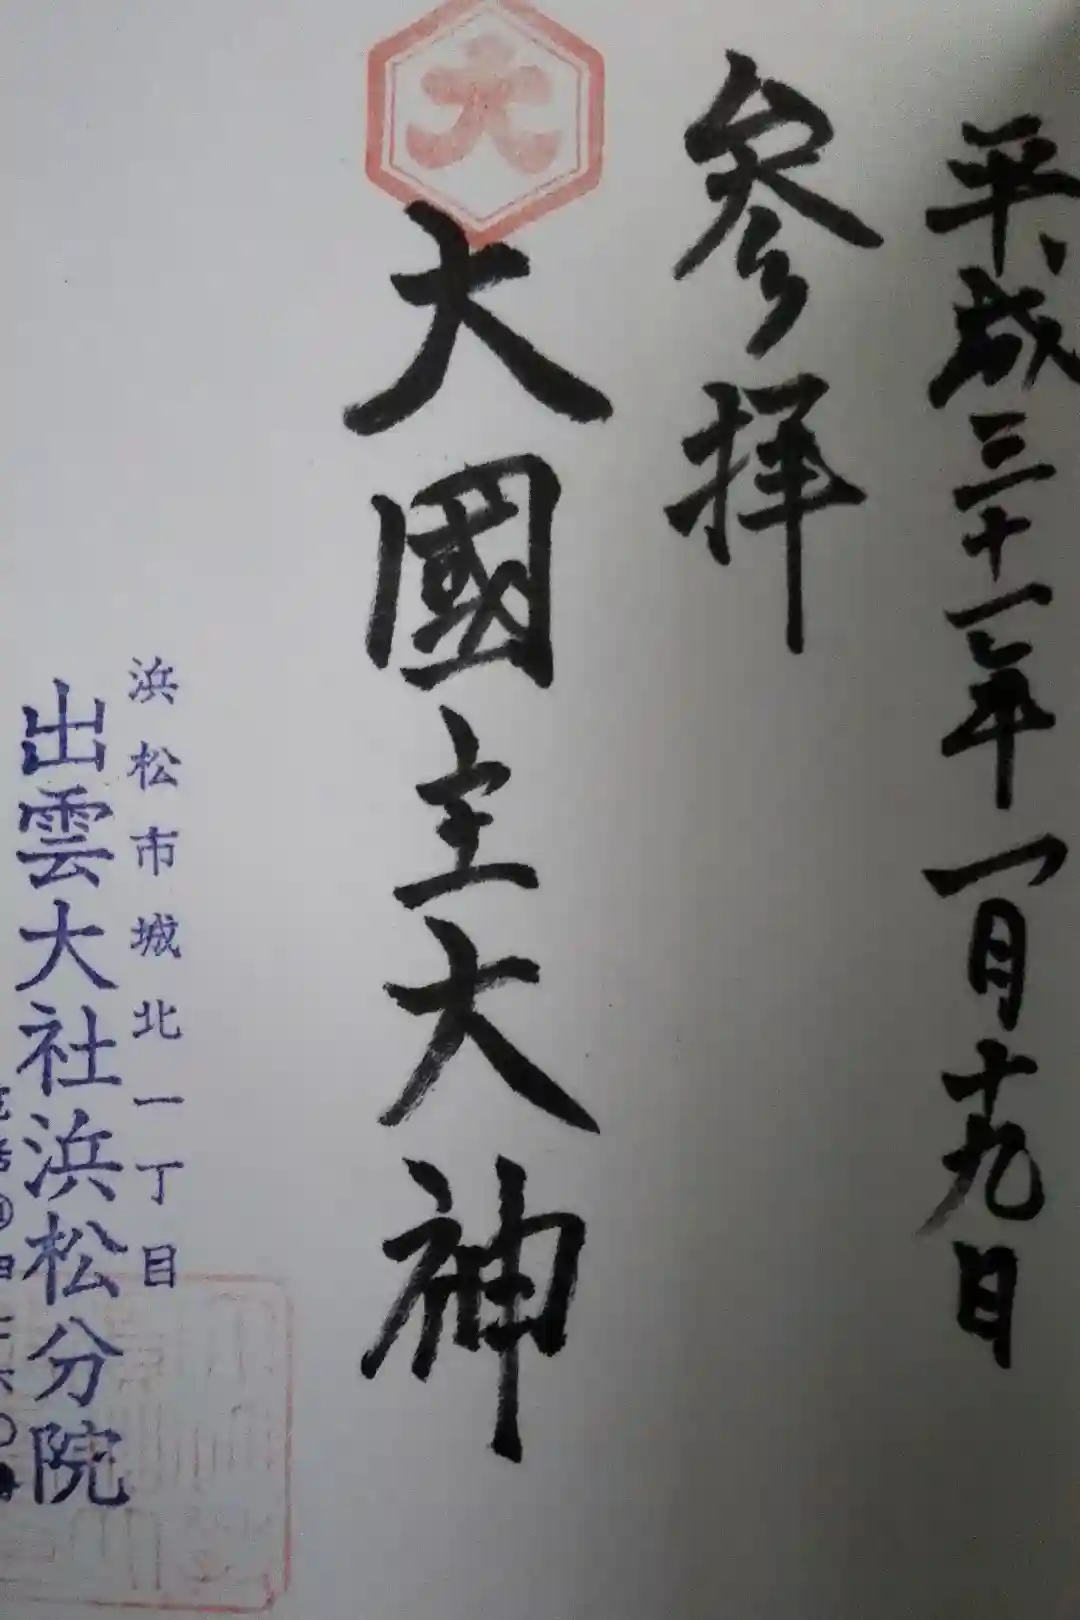 平成三十一年一月十九日
参拝
大
大國主大神
浜松市城北一丁目
出雲大社浜松分院